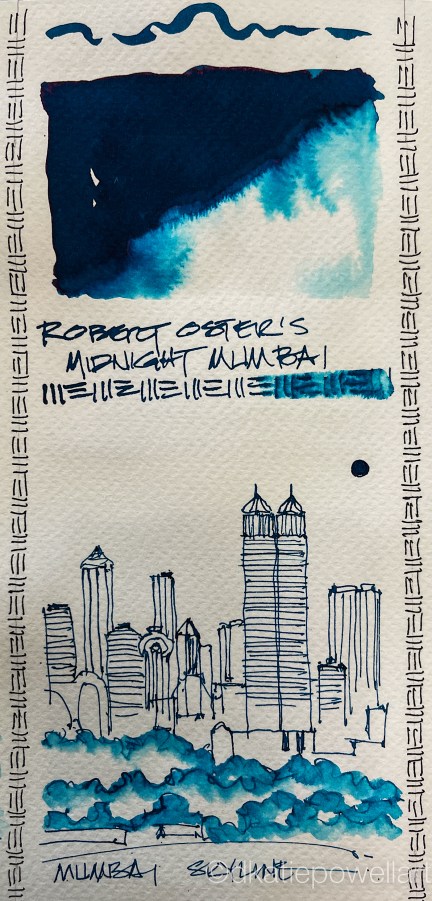 ROBERT OSTER'S
MIDNIGHT MUMBAI
MUMBAI SKYLINE
© dkatiepowellart